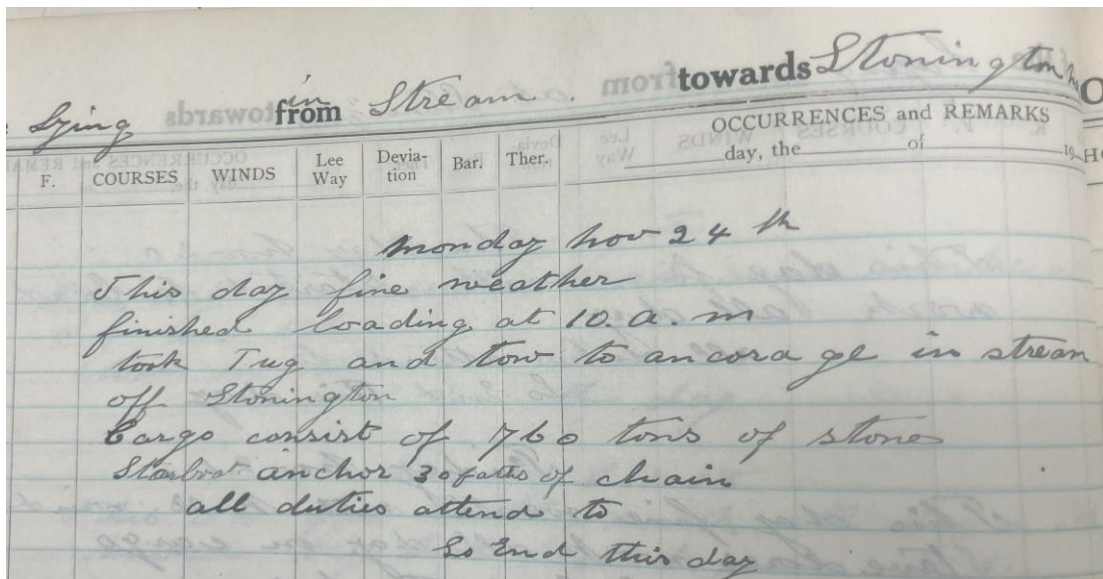 Lying in from Stream. towards Stonington
OCCURRENCES and REMARKS
F. COURSES WINDS Lee Way Devia- tion Bar. Ther. day, the of 19
monday nov 24 th
This day fine weather
finished loading at 10. a. m
took Tug and tow to ancorage in stream
off Stonington
Cargo consist of 760 tons of stone
Starbrd. anchor 30 faths of chain
all duties attend to
So End this day